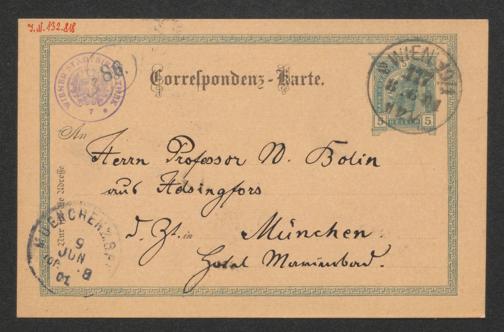 J.N. 132.818
86.
Correspondenz-Karte.
WIEN
5 5
An
Herrn Professor W. Bolin
aus Helsingfors
d. Zt. in München
Hotel Marienbad.
Nur für die Adresse
MUENCHEN
5
JUN